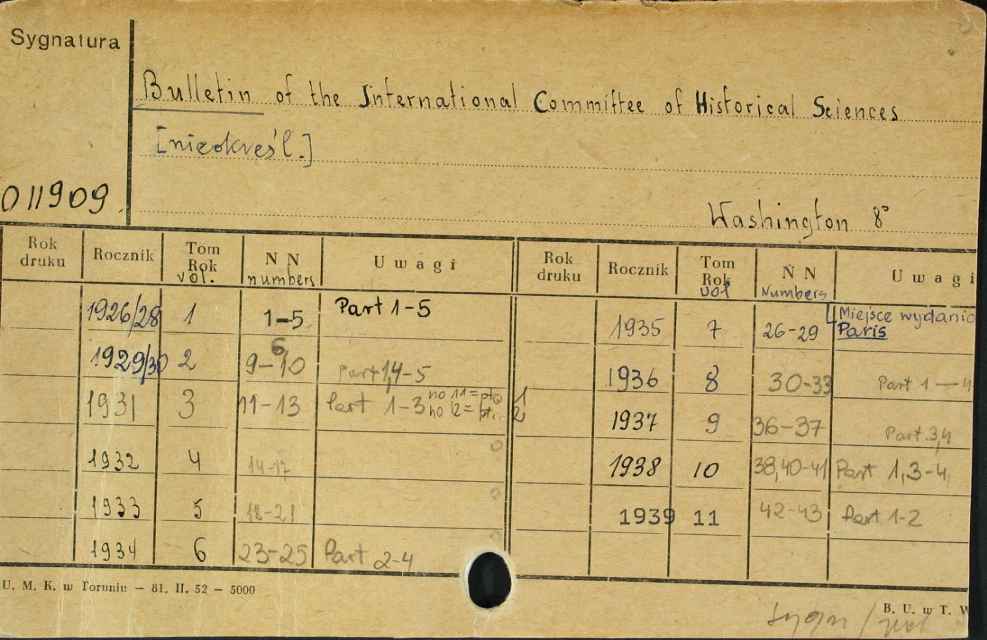 Sygnatura
Bulletin of the International Committee of Historical Sciences
[nieokreśl.]
011909
Washington 8°
Rok druku Rocznik Tom Rok vol. NN numbers Uwagi
1926/28 1 1-5 Part 1-5
1929/30 2 6 9-10 Part 1,4-5
1931 3 11-13 Part 1-3 no 11 = pt. 1 no 12 = pt. 2
1932 4 14-17
1933 5 18-21
1934 6 23-25 Part 2-4
Rok druku Rocznik Tom Rok vol NN Numbers Uwagi
1935 7 26-29 Miejsce wydania Paris
1936 8 30-33 Part 1-4
1937 9 36-37 Part 3,4
1938 10 38,40-41 Part 1,3-4
1939 11 42-43 Part 1-2
U. M. K. w Toruniu — 81. II. 52 — 5000
B. U. w T. W